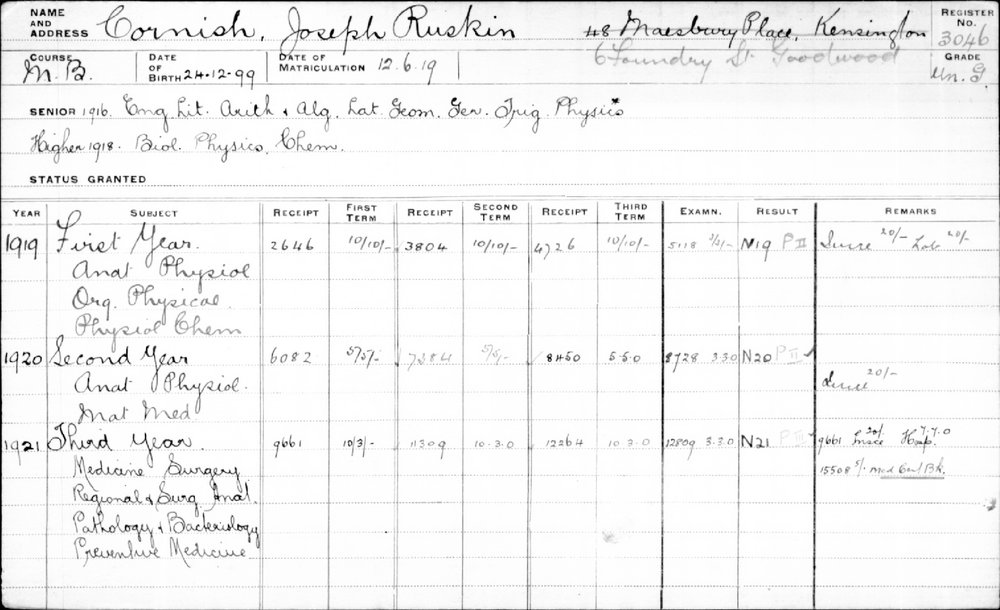 NAME AND ADDRESS Cornish, Joseph Ruskin 48 Maesbury Place, Kensington REGISTER No. 3046
6 Foundry St Goodwood
COURSE M.B. DATE OF BIRTH 24.12.99 DATE OF MATRICULATION 12.6.19 GRADE Un. G
SENIOR 1916. Eng. Lit. Arith & Alg, Lat. Geom. Ger. Trig. Physics*
Higher 1918. Biol. Physics, Chem.
STATUS GRANTED
YEAR SUBJECT RECEIPT FIRST TERM RECEIPT SECOND TERM RECEIPT THIRD TERM EXAMN. RESULT REMARKS
1919 First Year. 2646 10/10/- 3804 10/10/- 4726 10/10/- 5118 3/3/- N19 P II 20/- Lab 20/-
Anat Physiol
Org. Physical.
Physiol Chem
1920 Second Year 6082 5/5/- 7384 5/5/- 8450 5.5.0 8728 3.30 N20 P II
Anat Physiol. 20/-
Mat Med
1921 Third Year. 9661 10/3/- 11309 10.3.0 12264 10.3.0 12809 3.3.0 N21 P III 9661 20/- Hosp. 7.7.0
Medicine Surgery 15508 5/- Med Cert Bk.
Regional & Surg Anat.
Pathology & Bacteriology
Preventive Medicine